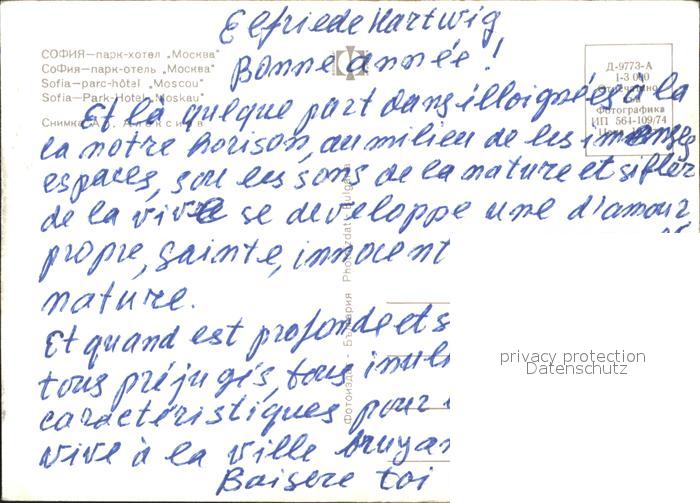 Elfriede Hartwig
Bonne année!
СОФИЯ—парк-хотел „Москва"
СоФия—парк-отель „Москва"
Sofia—parc-hôtel „Moscou"
Sofia—Park-Hotel „Moskau"
Снимка
Д-9773-А
1-3 000
Отпечатано
на
Фотографика
ИП 564-109/74
Et là quelque part dans illoignées à la
la notre horison, au milieu de les imenses
espaces, sou les sons de la nature et sifler
de la vivre se developpe une d'amour
propre, sainte, innocent
nature.
Et quand est profonde et s
tous préjugés, tous inuti
caractéristiques pour
vive à la ville bruyan
Baisere toi
Фотоиздат - България Photoizdat Bulgaria
privacy protection
Datenschutz